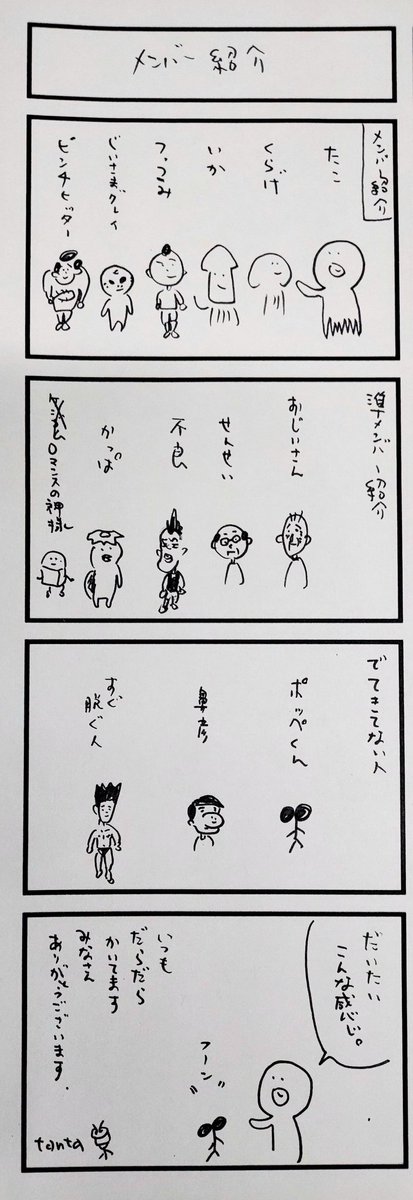 メンバー紹介
メンバー紹介
たこ
くらげ
いか
つっこみ
じいさまグレイ
ピンチヒッター
準メンバー紹介
おじいさん
せんせい
不良
かっぱ
ロマンスの神様
でてきてない人
ポッペくん
鼻彦
すぐ
脱ぐ人
だいたい
こんな感じ。
フーン
いつも
だらだら
かいてます
みなさん
ありがとうございます.
tanta